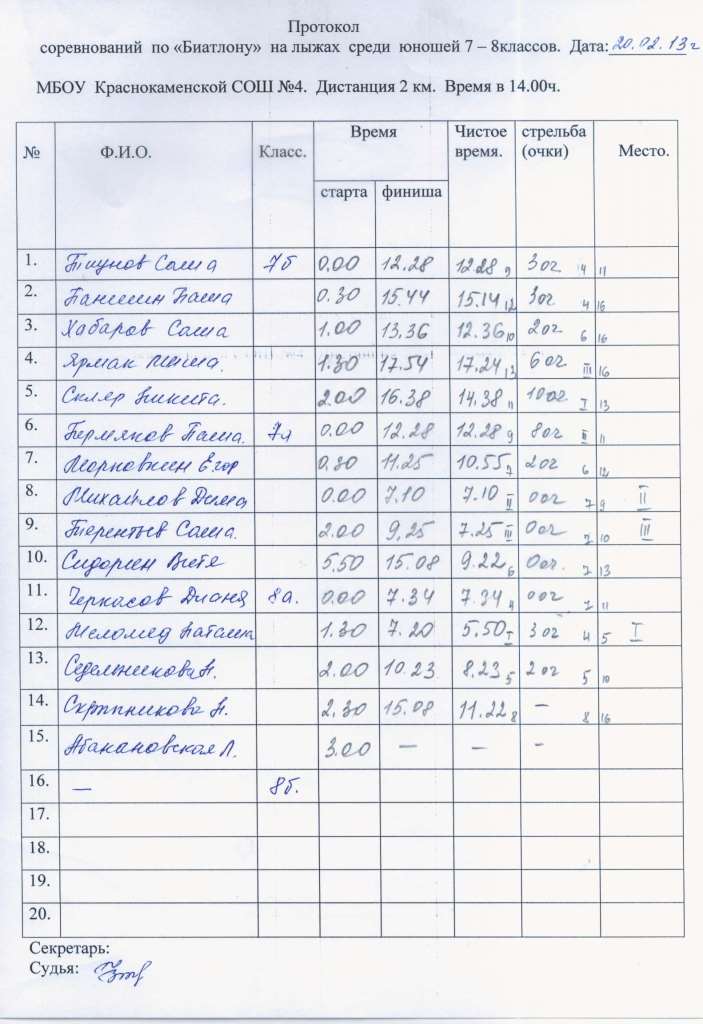 Протокол
соревнований по «Биатлону» на лыжах среди юношей 7 – 8классов. Дата: 20.02.13г
МБОУ Краснокаменской СОШ №4. Дистанция 2 км. Время в 14.00ч.
№ Ф.И.О. Класс. Время Чистое время. стрельба (очки) Место.
старта финиша
1. Тиунов Саша 7б 0.00 12.28 12.28 9 3 ог 4 11
2. Паншин Паша 0.30 15.44 15.14 12 3ог 4 16
3. Хабаров Саша 1.00 13.36 12.36 10 2ог 6 16
4. Ярмак Миша. 1.30 17.54 17.24 13 6 ог III 16
5. Скляр Никита. 2.00 16.38 14.38 11 10ог I 13
6. Пермяков Паша. 7а 0.00 12.28 12.28 9 8ог II 11
7. Егор 0,30 11.25 10.55 7 2ог 6 12
8. Михайлов Дима 0.00 7.10 7.10 II 0ог 7 9 II
9. Терентьев Саша. 2.00 9,25 7.25 III 0ог 7 10 III
10. Сидорин Витя 5.50 15.08 9.22 6 0ог. 7 13
11. Черкасов 8а. 0.00 7.34 7.34 4 0ог 7 11
12. 1.30 7.20 5.50 I 3 ог 4 5 I
13. Седельникова Н. 2.00 10.23 8.23 5 2 ог 5 10
14. Скрипникова Н. 2.30 15.08 11.22 8 – 8 16
15. Абакановская Л. 3.00 – – –
16. – 8б.
17.
18.
19.
20.
Секретарь:
Судья: